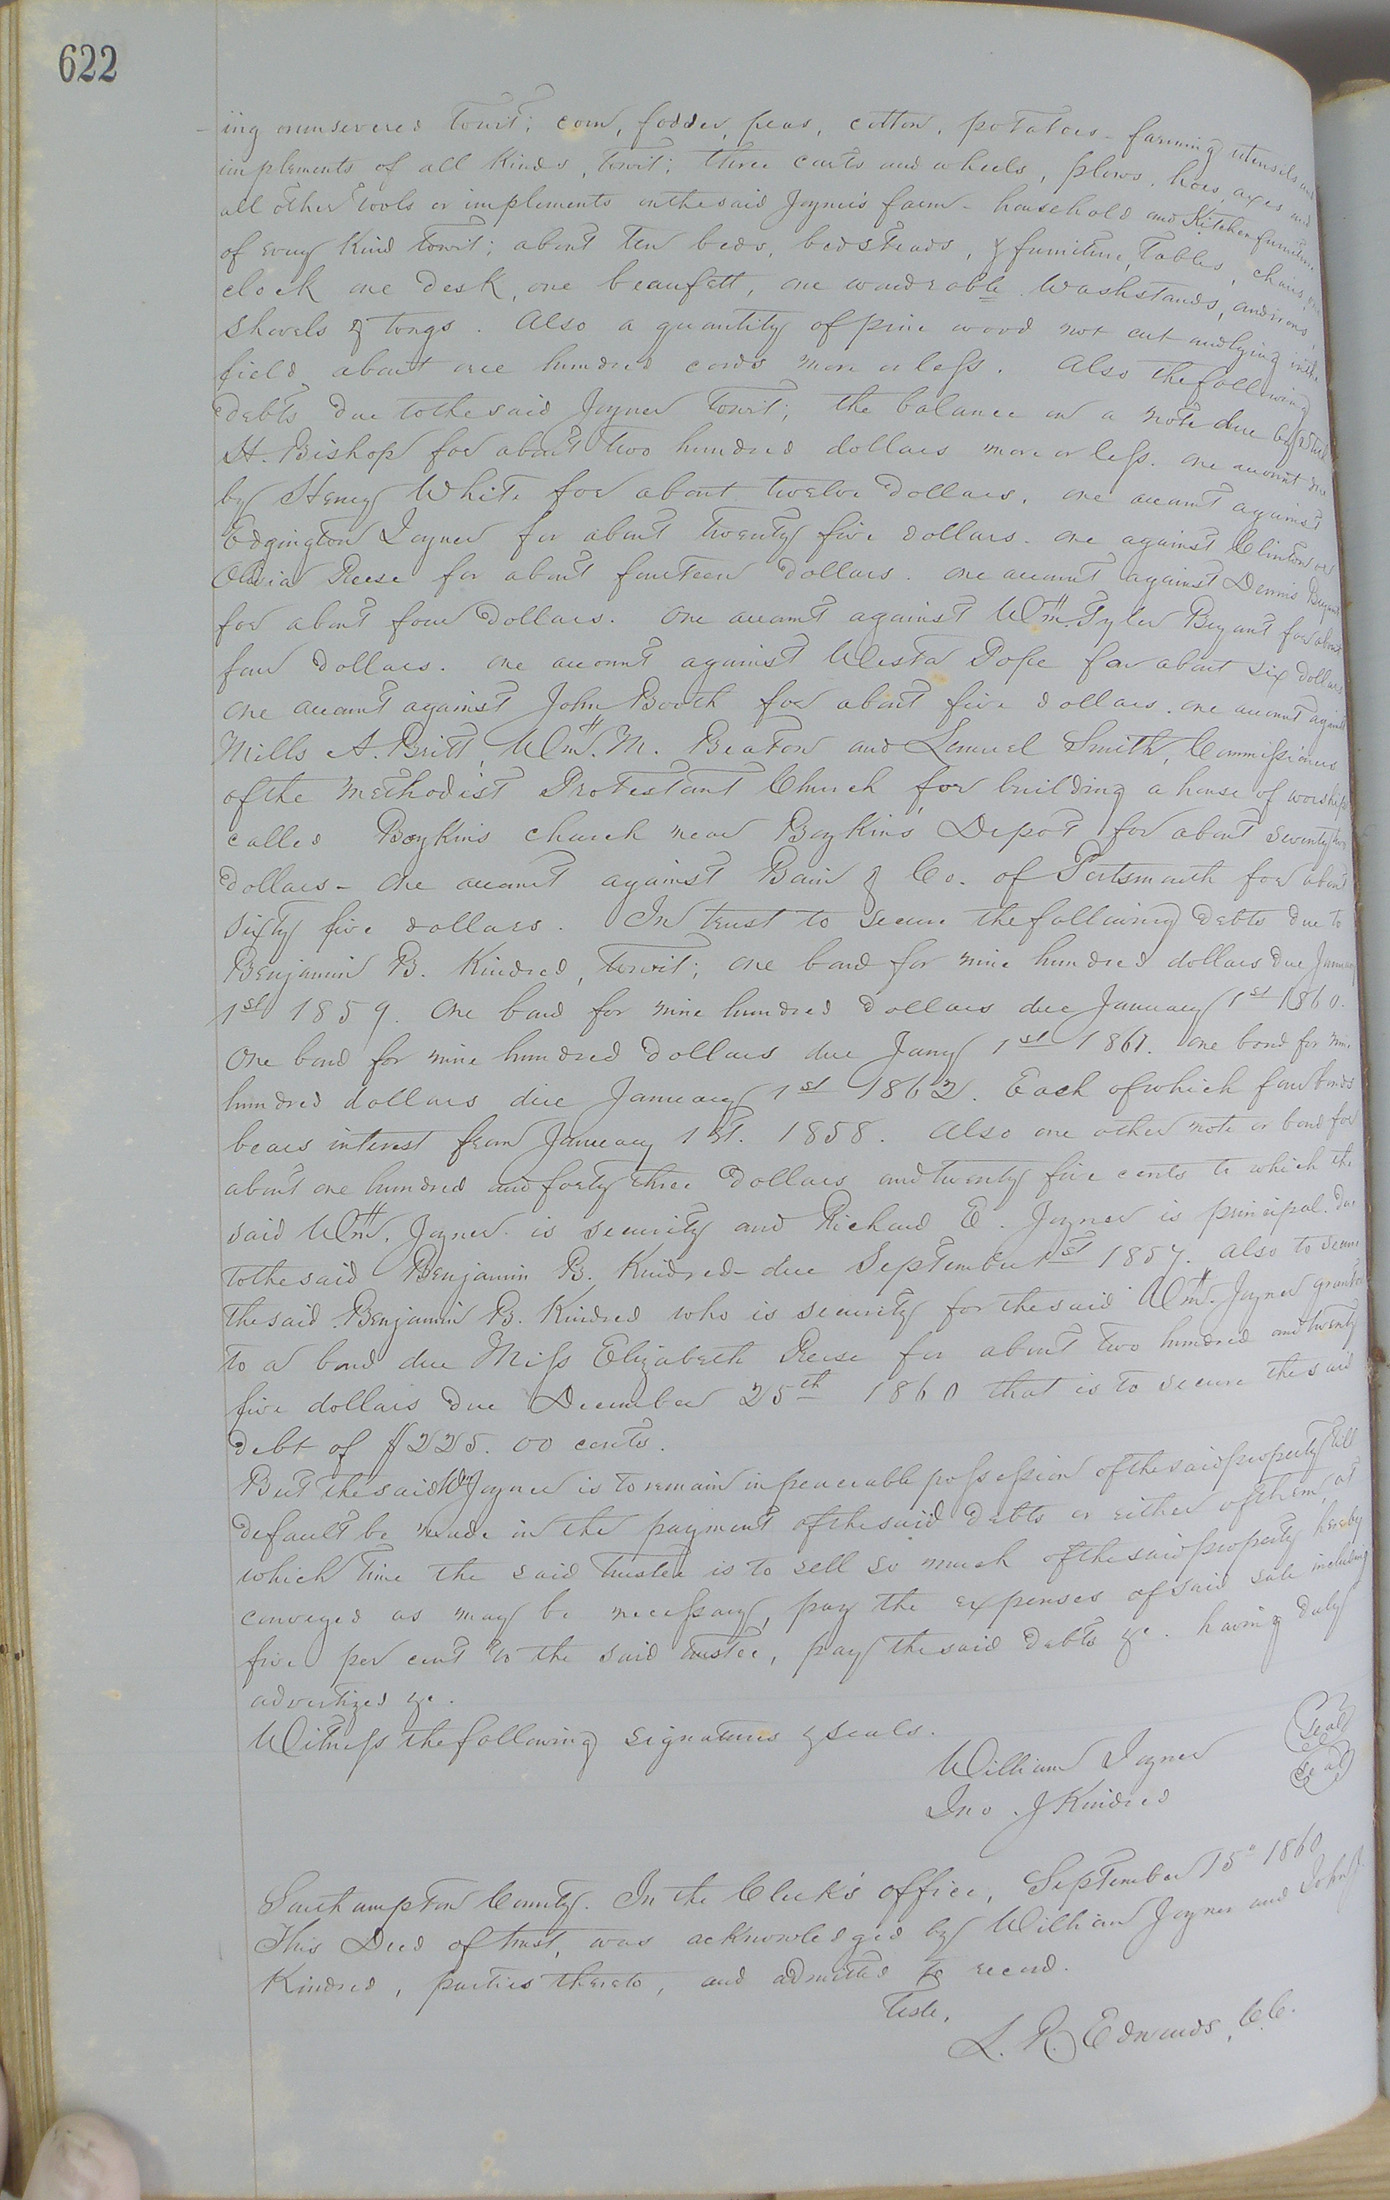 622
ing or unsevered towit; corn, fodder, peas, cotton, potatoes - farming utensils and
implements of all kinds, towit; three carts and wheels, plows, hoes, axes and
all other tools or implements on the said Joyner's farm - household and Kitchen furniture
of every kind towit; about ten beds, bedsteads, & furniture, tables, chairs, one
clock one desk, one beaufett, one warderoble washstands, andirons,
Shovels & tongs. Also a quantity of pine wood not cut and lying in the
field about one hundred cords more or less. Also the following
debts due to the said Joyner towit; the balance on a note due by
H. Bishop for about two hundred dollars more or less. one account due
by Henry White for about twelve dollars, one account against
Edgington Joyner for about twenty five dollars. one against Clinton
Olivia Reese for about fourteen dollars. one account against Dennis Bryant
for about four dollars. One account against Wm. Tyler Bryant for about
four dollars. one account against Wester Pope for about six dollars
one account against John Booth for about five dollars. one account against
Mills A. Britt, Wm. M. Beaton and Lemuel Smith, Commissioners
of the Methodist Protestant Church for building a house of worship
called Boykins church near Boykins Depot for about seventy two
dollars - One account against Bain & Co. of Portsmouth for about
sixty five dollars. In trust to secure the following debts due to
Benjamin B. Kindred, towit; one bond for nine hundred dollars due January
1st 1859. One bond for nine hundred dollars due January 1st 1860.
One bond for nine hundred dollars due Jany 1st 1861. one bond for nine
hundred dollars due January 1st 1862. Each of which four bonds
bears interest from January 1st. 1858. Also one other note or bond for
about one hundred and forty three dollars and twenty five cents to which the
said Wm. Joyner is security and Richard E. Joyner is principal. due
to the said Benjamin B. Kindred - due September 1st 1857. Also to secure
the said Benjamin B. Kindred who is security for the said Wm. Joyner grantor
to a bond due Miss Elizabeth Reese for about two hundred and twenty
five dollars due December 25th 1860 that is to secure the said
debt of $225.00 cents.
But the said Wm Joyner is to remain in peaceable possession of the said property till
default be made in the payment of the said debts or either of them, at
which time the said trustee is to sell so much of the said property hereby
conveyed as may be necessary, pay the expenses of said sale including
five per cent to the said trustee, pay the said debts &c. having duly
advertized &c.
Witness the following signatures & seals.
William Joyner Seal
Jno. J Kindred Seal
Southampton County. In the Clerk's office, September 15" 1860
This Deed of trust, was acknowledged by William Joyner and John J.
Kindred, parties thereto, and admitted to record.
Teste,
L. R. Edwards, C.C.